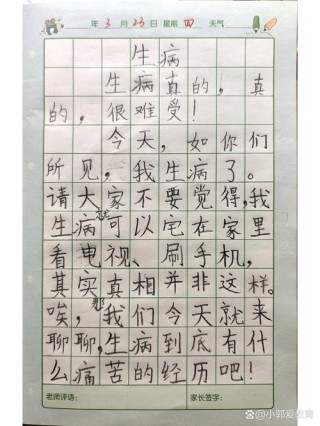 年 3 月 23 日 星期 四 天气
生病
生病真的，真
的，很难受！
今天，如你们
所见，我生病了。
请大家不要觉得，我
生病就可以宅在家里
看电视、刷手机，
其实真相并非这样。
唉，那我们今天就来
聊聊，生病到底有什
么痛苦的经历吧！
老师评语： 家长签字：
@小郭爱教育